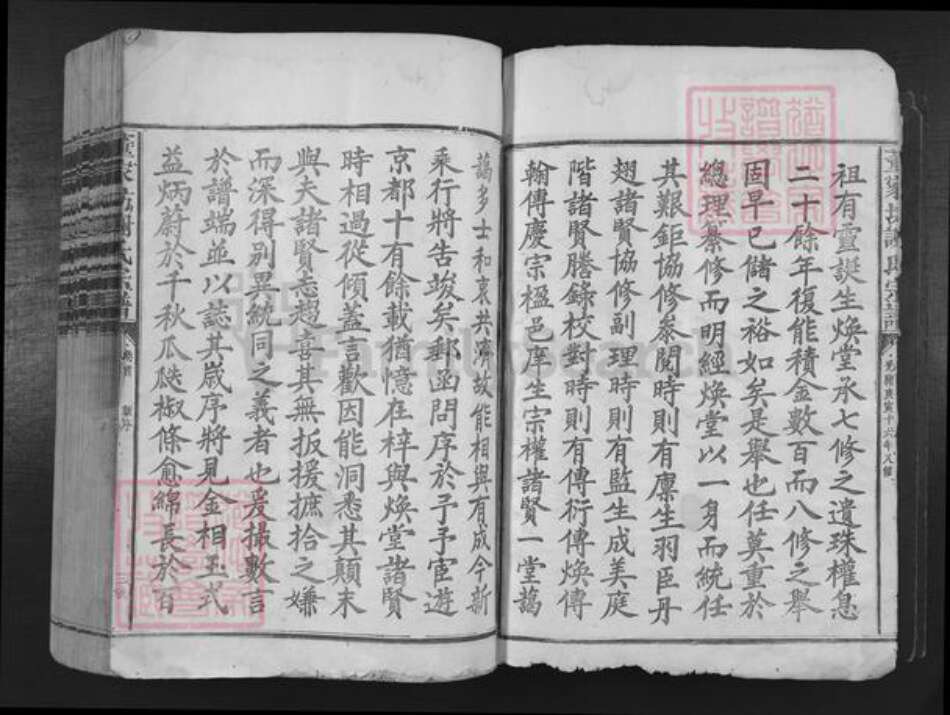 祖有靈誕生煥堂承七修之遺珠權息
二十餘年復能積金數百而八修之舉
固早已儲之裕如矣是舉也任莫重於
總理纂修而明經煥堂以一身而統任
其艱鉅協修叅閱時則有廩生羽臣丹
翅諸賢協修副理時則有監生成美庭
階諸賢謄錄校對時則有傳衍傳煥傳
翰傳慶宗楹邑庠生宗權諸賢一堂藹
藹多士和衷共濟故能相與有成今新
乘行將告竣矣郵函問序於予予宦遊
京都十有餘載猶憶在梓與煥堂諸賢
時相過從傾蓋言歡因能洞悉其顛末
與夫諸賢志趨喜其無扳援摭拾之嫌
而深得別異統同之義者也爰撮數言
於譜端並以誌其歲序將見金相玉式
益炳蔚於千秋瓜瓞椒條愈綿長於百
光緒庚寅十六年八修
FamilySearch